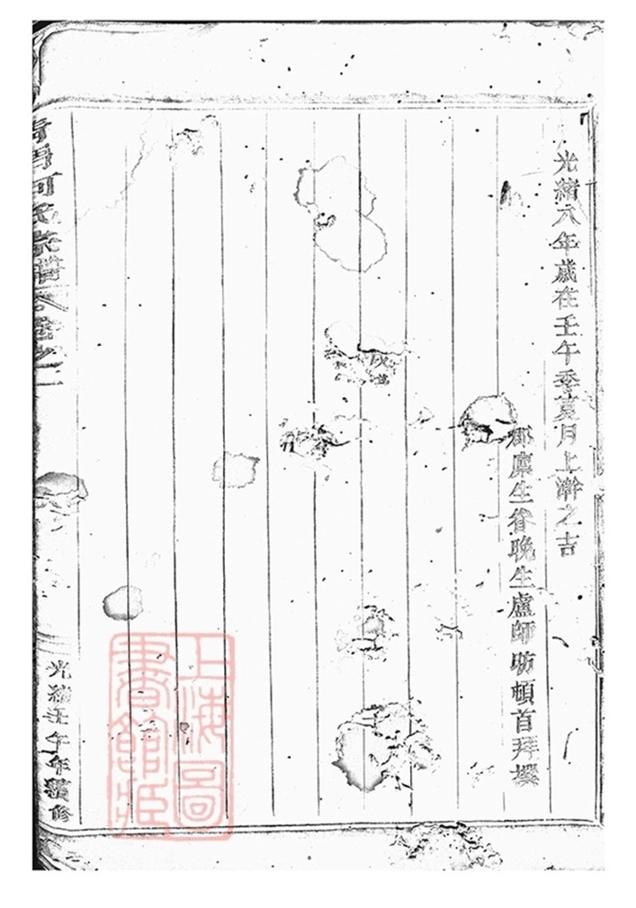 光緒八年歲在壬午季夏月上澣之吉
郡廩生眷晚生盧師昉頓首拜撰
何氏宗譜卷之二
光緒壬午年續修
上海圖書館藏